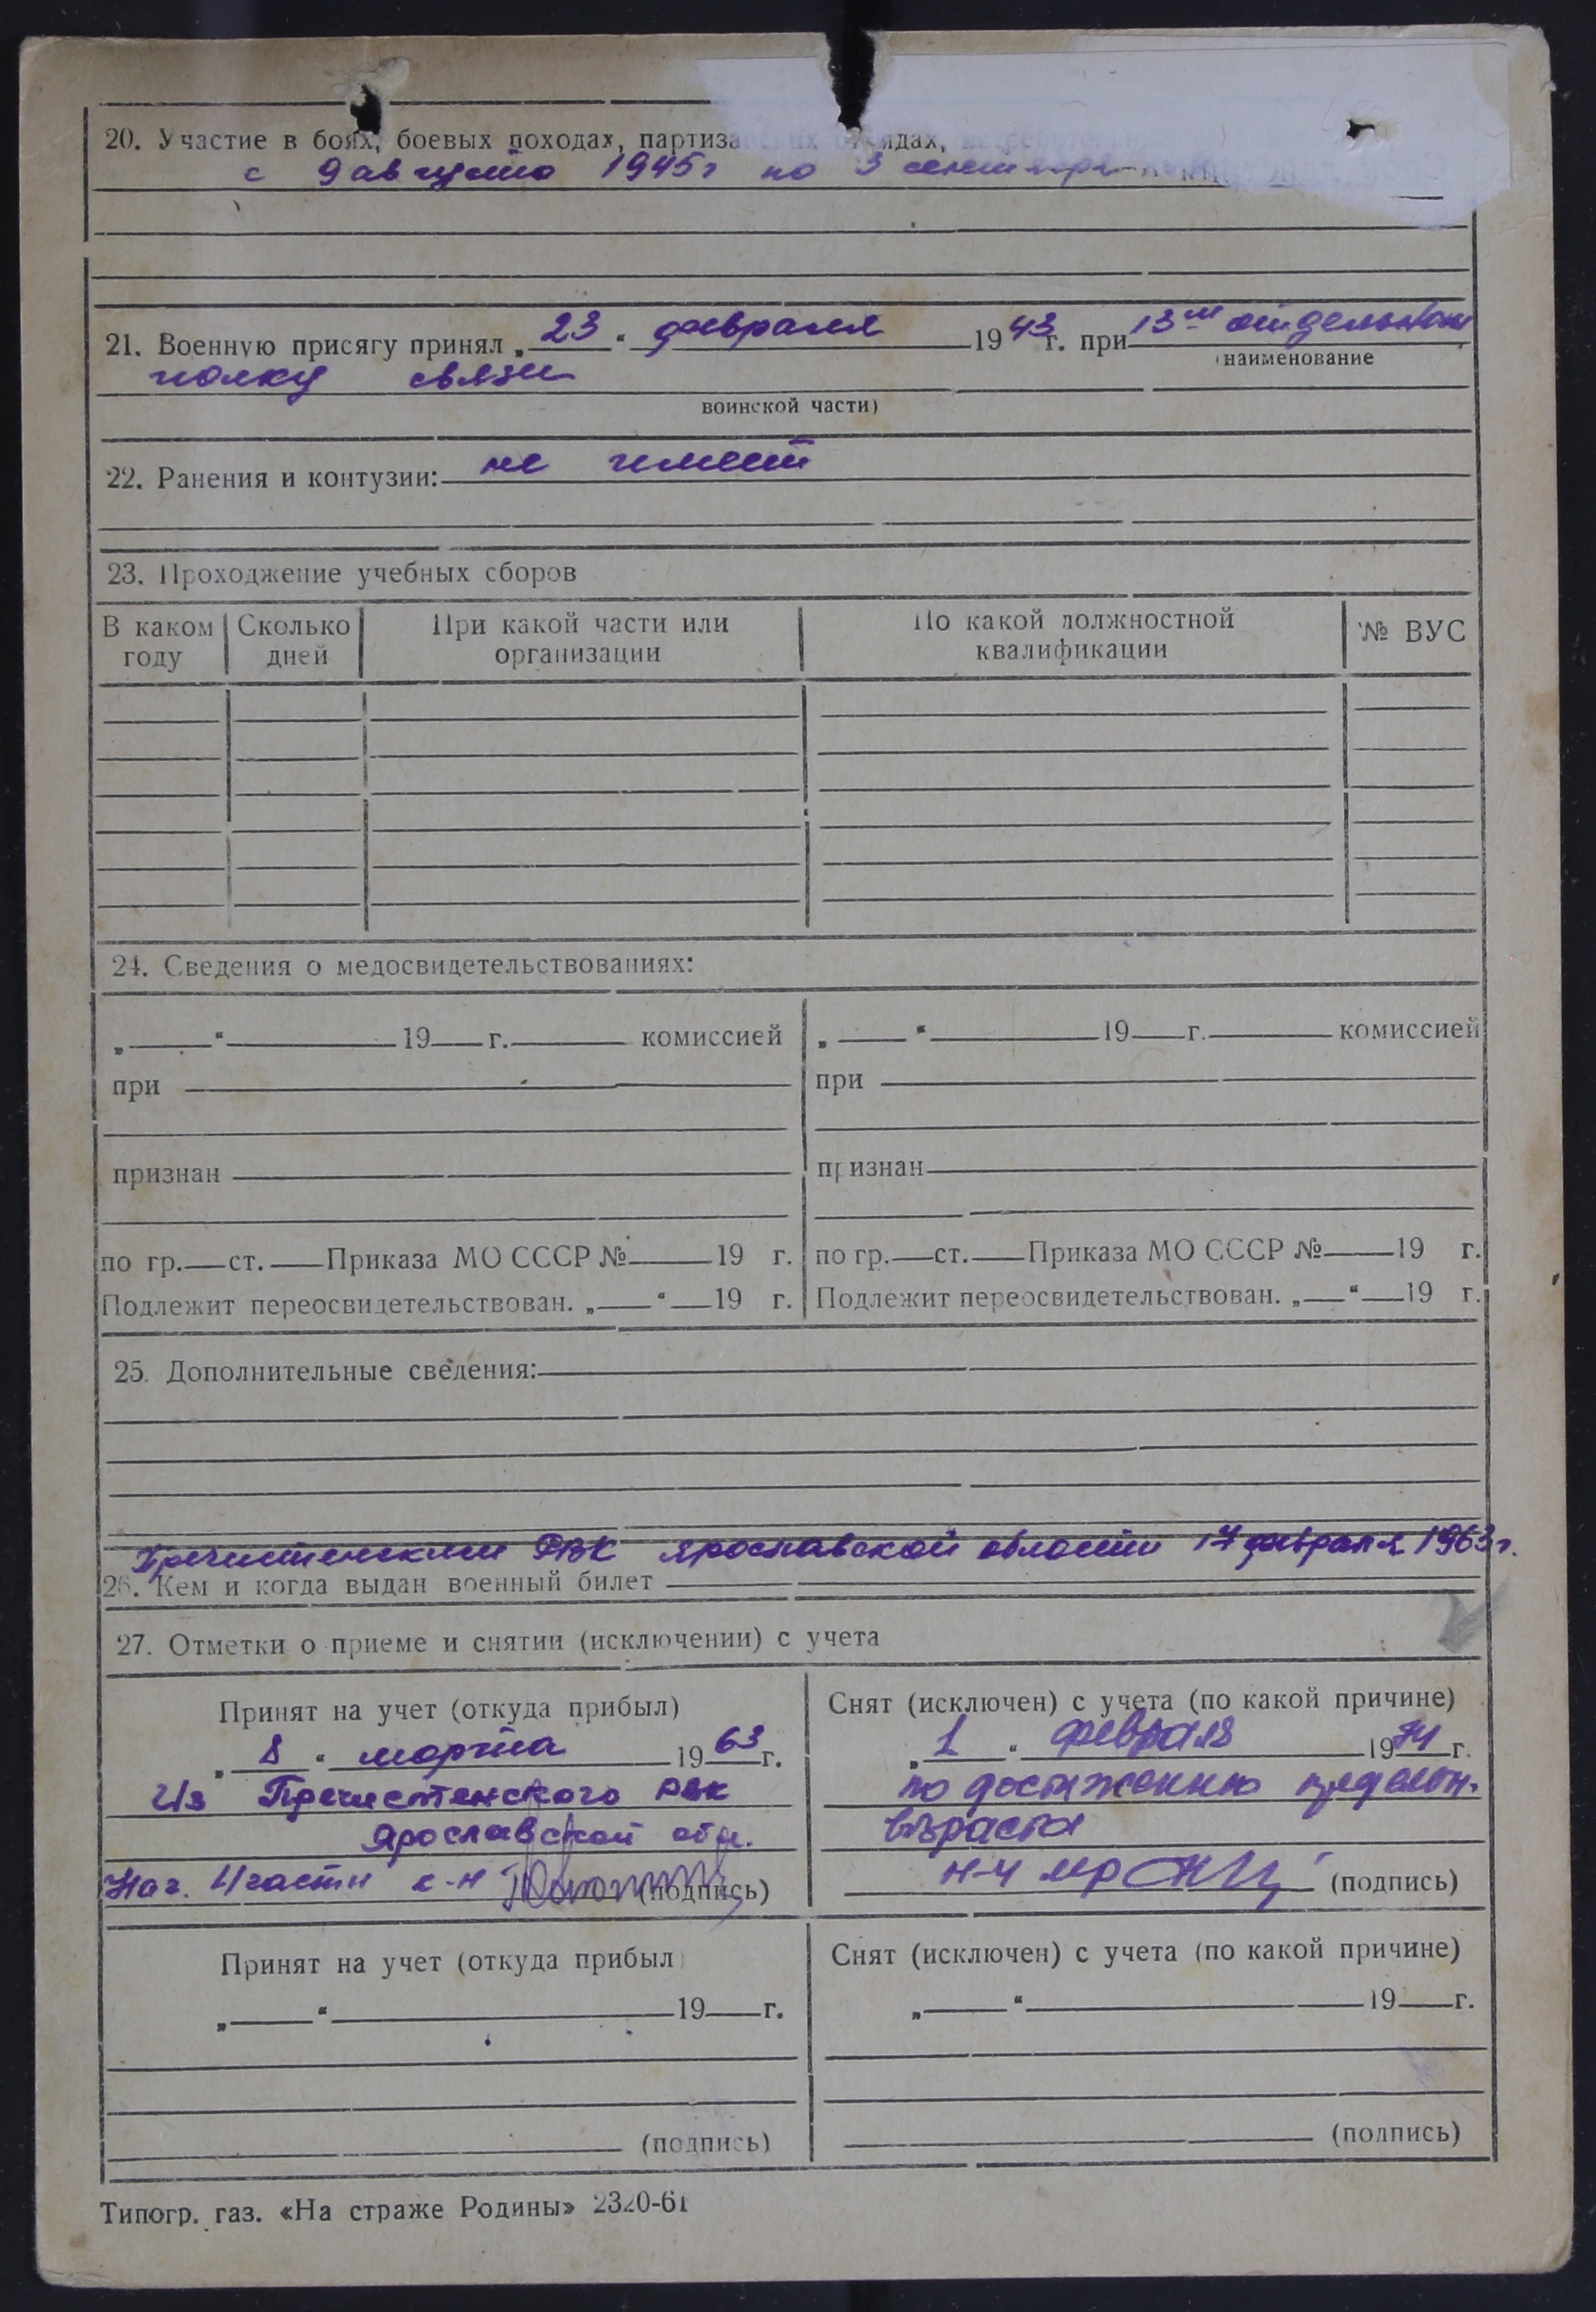 20. Участие в боях, боевых походах, партизанских отрядах,
с 9 августа 1945г по 3 сентября
21. Военную присягу принял „ 23 “ февраля 1943 г. при 13м отдельном
(наименование
полку связи
воинской части)
22. Ранения и контузии: не имеет
23. Прохождение учебных сборов
В каком Сколько При какой части или По какой должностной № ВУС
году дней организации квалификации
24. Сведения о медосвидетельствованиях:
„ “ 19 г. комиссией „ “ 19 г. комиссией
при при
признан признан
по гр. ст. Приказа МО СССР № 19 г. по гр. ст. Приказа МО СССР № 19 г.
Подлежит переосвидетельствован. „ “ 19 г. Подлежит переосвидетельствован. „ “ 19 г.
25. Дополнительные сведения:
Пречистенским РВК Ярославской области 17 февраля 1963г.
26. Кем и когда выдан военный билет
27. Отметки о приеме и снятии (исключении) с учета
Принят на учет (откуда прибыл) Снят (исключен) с учета (по какой причине)
„ 8 “ марта 1963 г. „ 1 “ февраля 1974 г.
Из Пречистенского РВК по достижению предельн.
Ярославской обл. возраста
Нач. 4 части к-н (подпись) н-4 м-р (подпись)
Принят на учет (откуда прибыл) Снят (исключен) с учета (по какой причине)
„ “ 19 г. „ “ 19 г.
(подпись) (подпись)
Типогр. газ. «На страже Родины» 2320-61